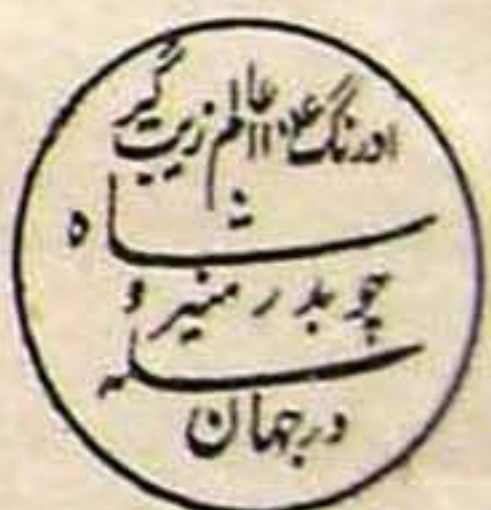 اورنگ عالم زیب گیر
شاه
چو بدر منیر
سکه
در جهان